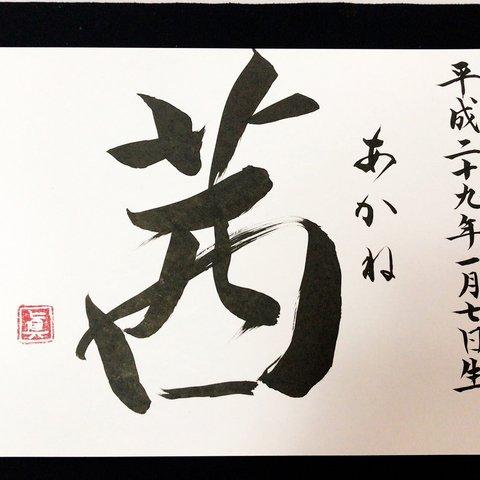 平成二十九年一月七日生
あかね
茜
眞